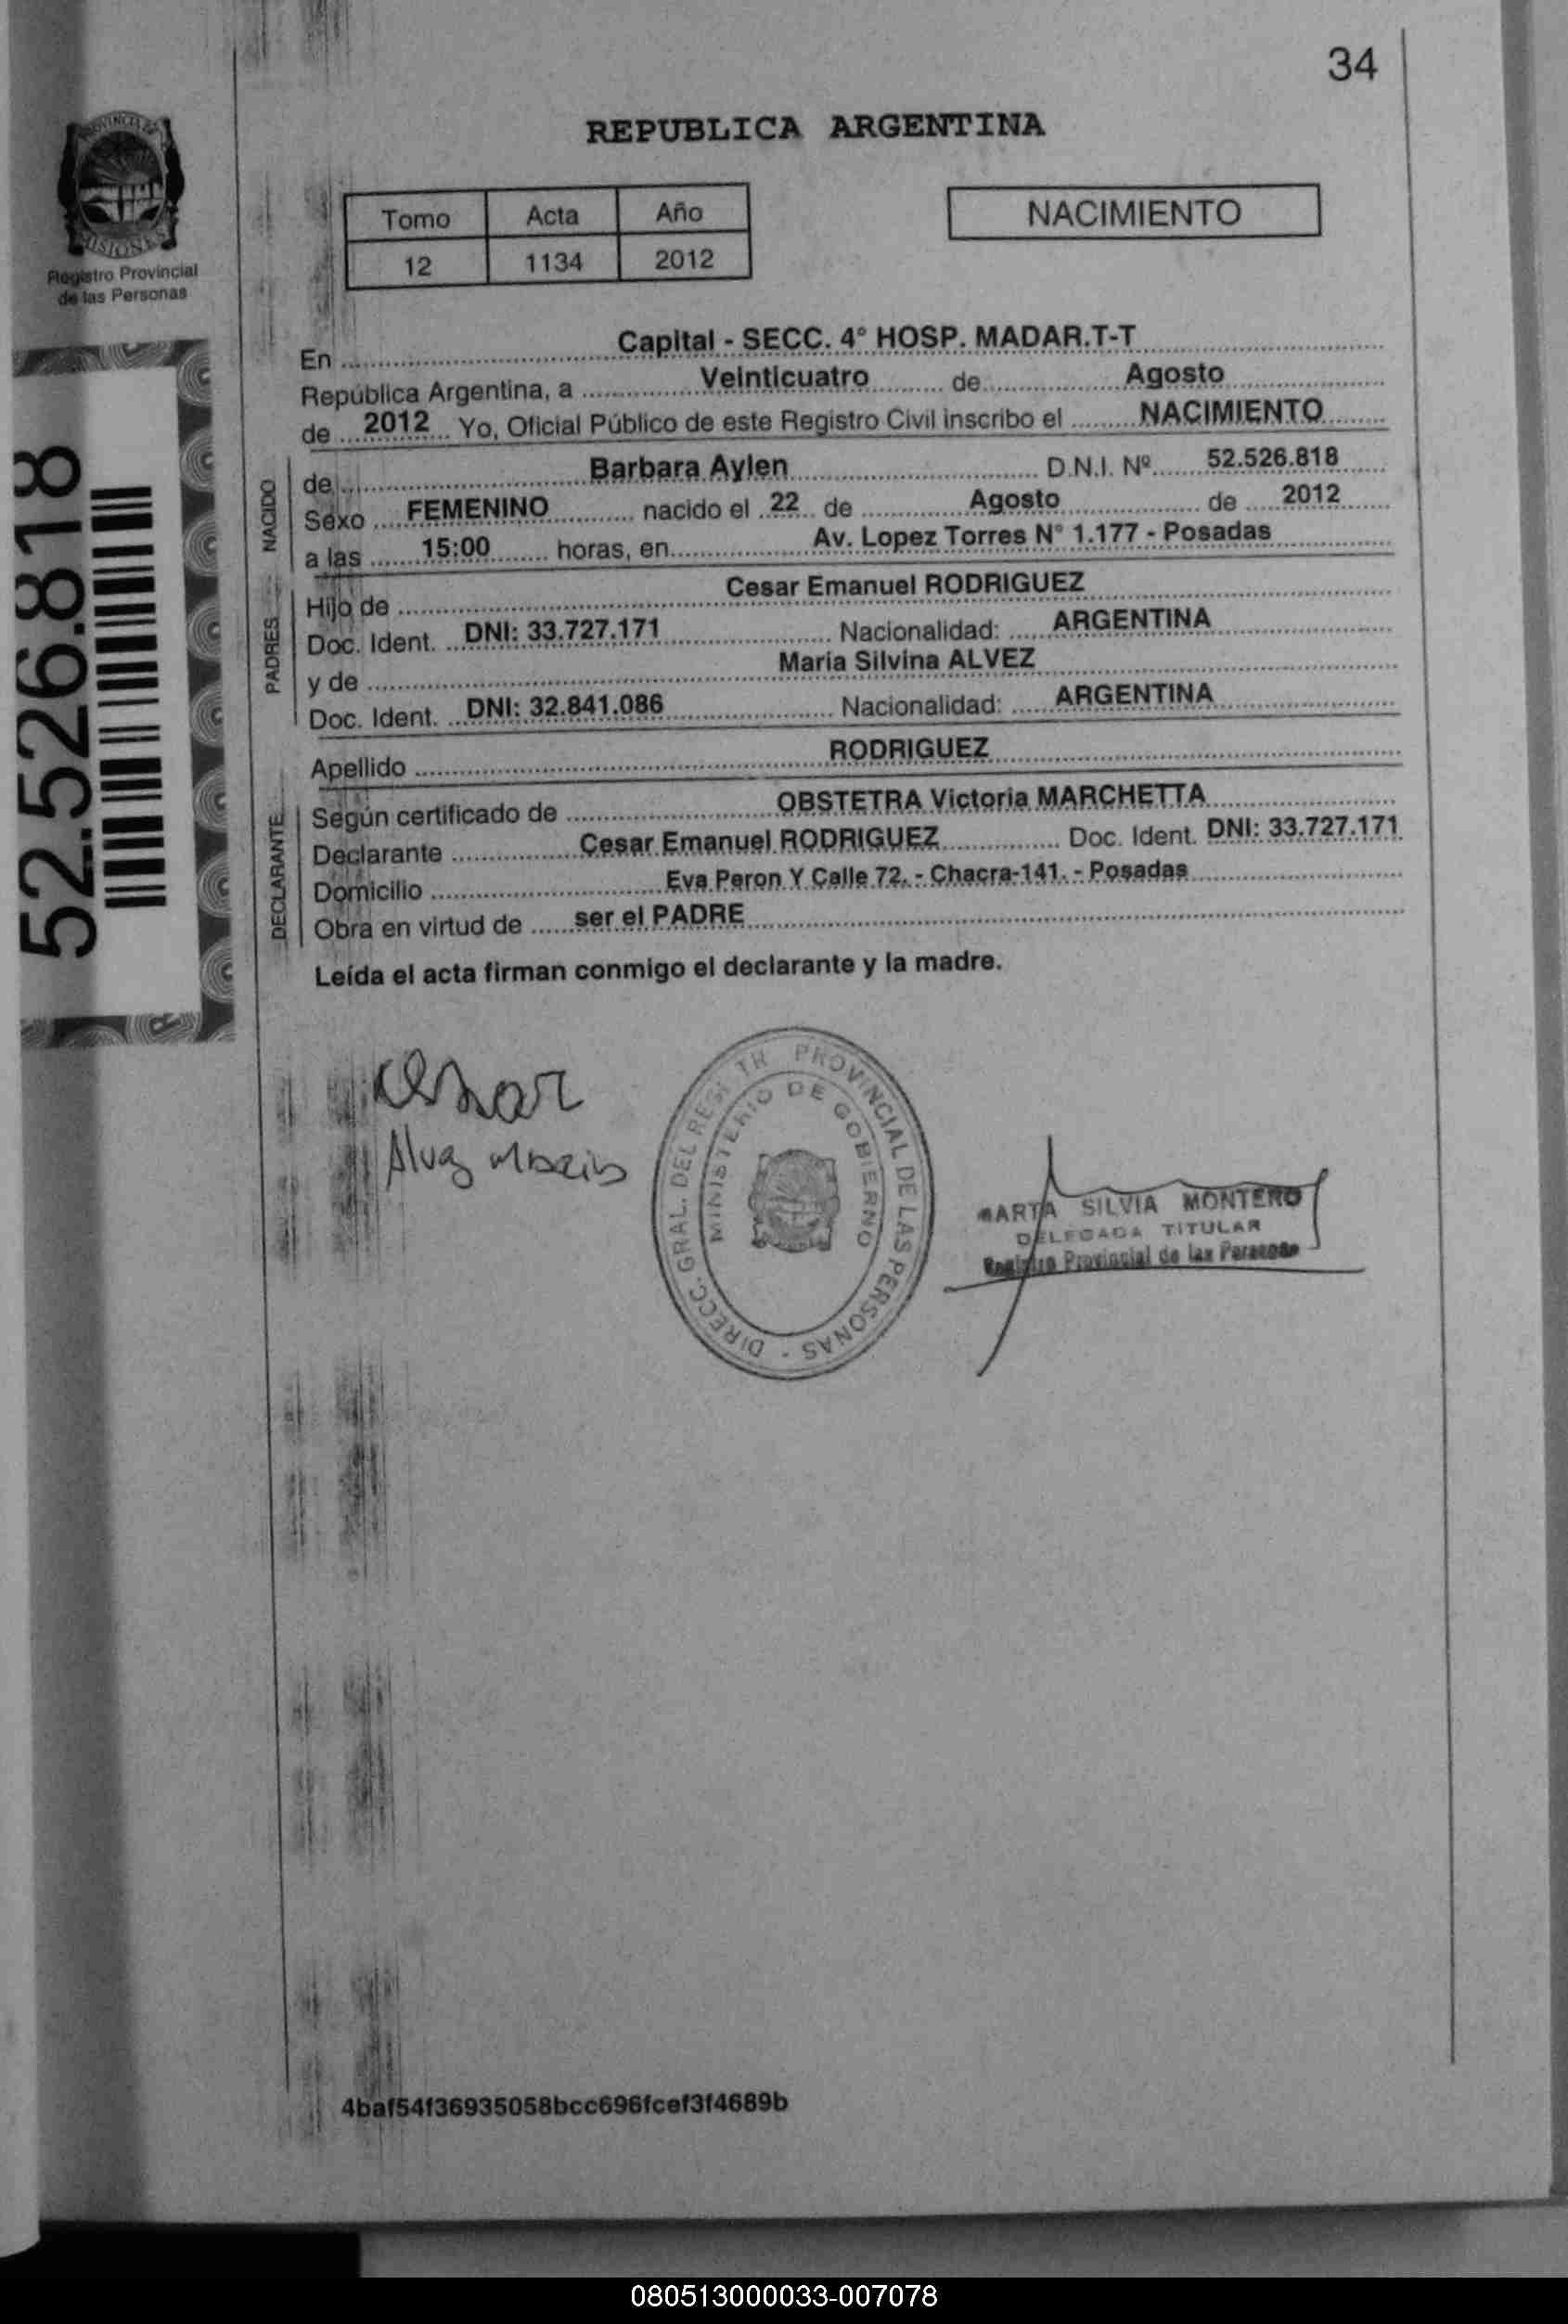 34
REPUBLICA ARGENTINA
PROVINCIA DE
MISIONES
Registro Provincial
de las Personas
Tomo Acta Año
12 1134 2012
NACIMIENTO
52.526.818
En Capital - SECC. 4° HOSP. MADAR.T-T
República Argentina, a Veinticuatro de Agosto
de 2012 Yo, Oficial Público de este Registro Civil inscribo el NACIMIENTO
NACIDO
de Barbara Aylen D.N.I. Nº 52.526.818
Sexo FEMENINO nacido el 22 de Agosto de 2012
a las 15:00 horas, en Av. Lopez Torres N° 1.177 - Posadas
PADRES
Hijo de Cesar Emanuel RODRIGUEZ
Doc. Ident. DNI: 33.727.171 Nacionalidad: ARGENTINA
y de Maria Silvina ALVEZ
Doc. Ident. DNI: 32.841.086 Nacionalidad: ARGENTINA
Apellido RODRIGUEZ
DECLARANTE
Según certificado de OBSTETRA Victoria MARCHETTA
Declarante Cesar Emanuel RODRIGUEZ Doc. Ident. DNI: 33.727.171
Domicilio Eva Peron Y Calle 72. - Chacra-141. - Posadas
Obra en virtud de ser el PADRE
Leída el acta firman conmigo el declarante y la madre.
DIRECC. GRAL. DEL PROVINCIAL DE LAS PERSONAS -
MINISTERIO DE GOBIERNO
MARTA SILVIA MONTERO
DELEGADA TITULAR
Registro Provincial de las Personas
4baf54f36935058bcc696fcef3f4689b
080513000033-007078